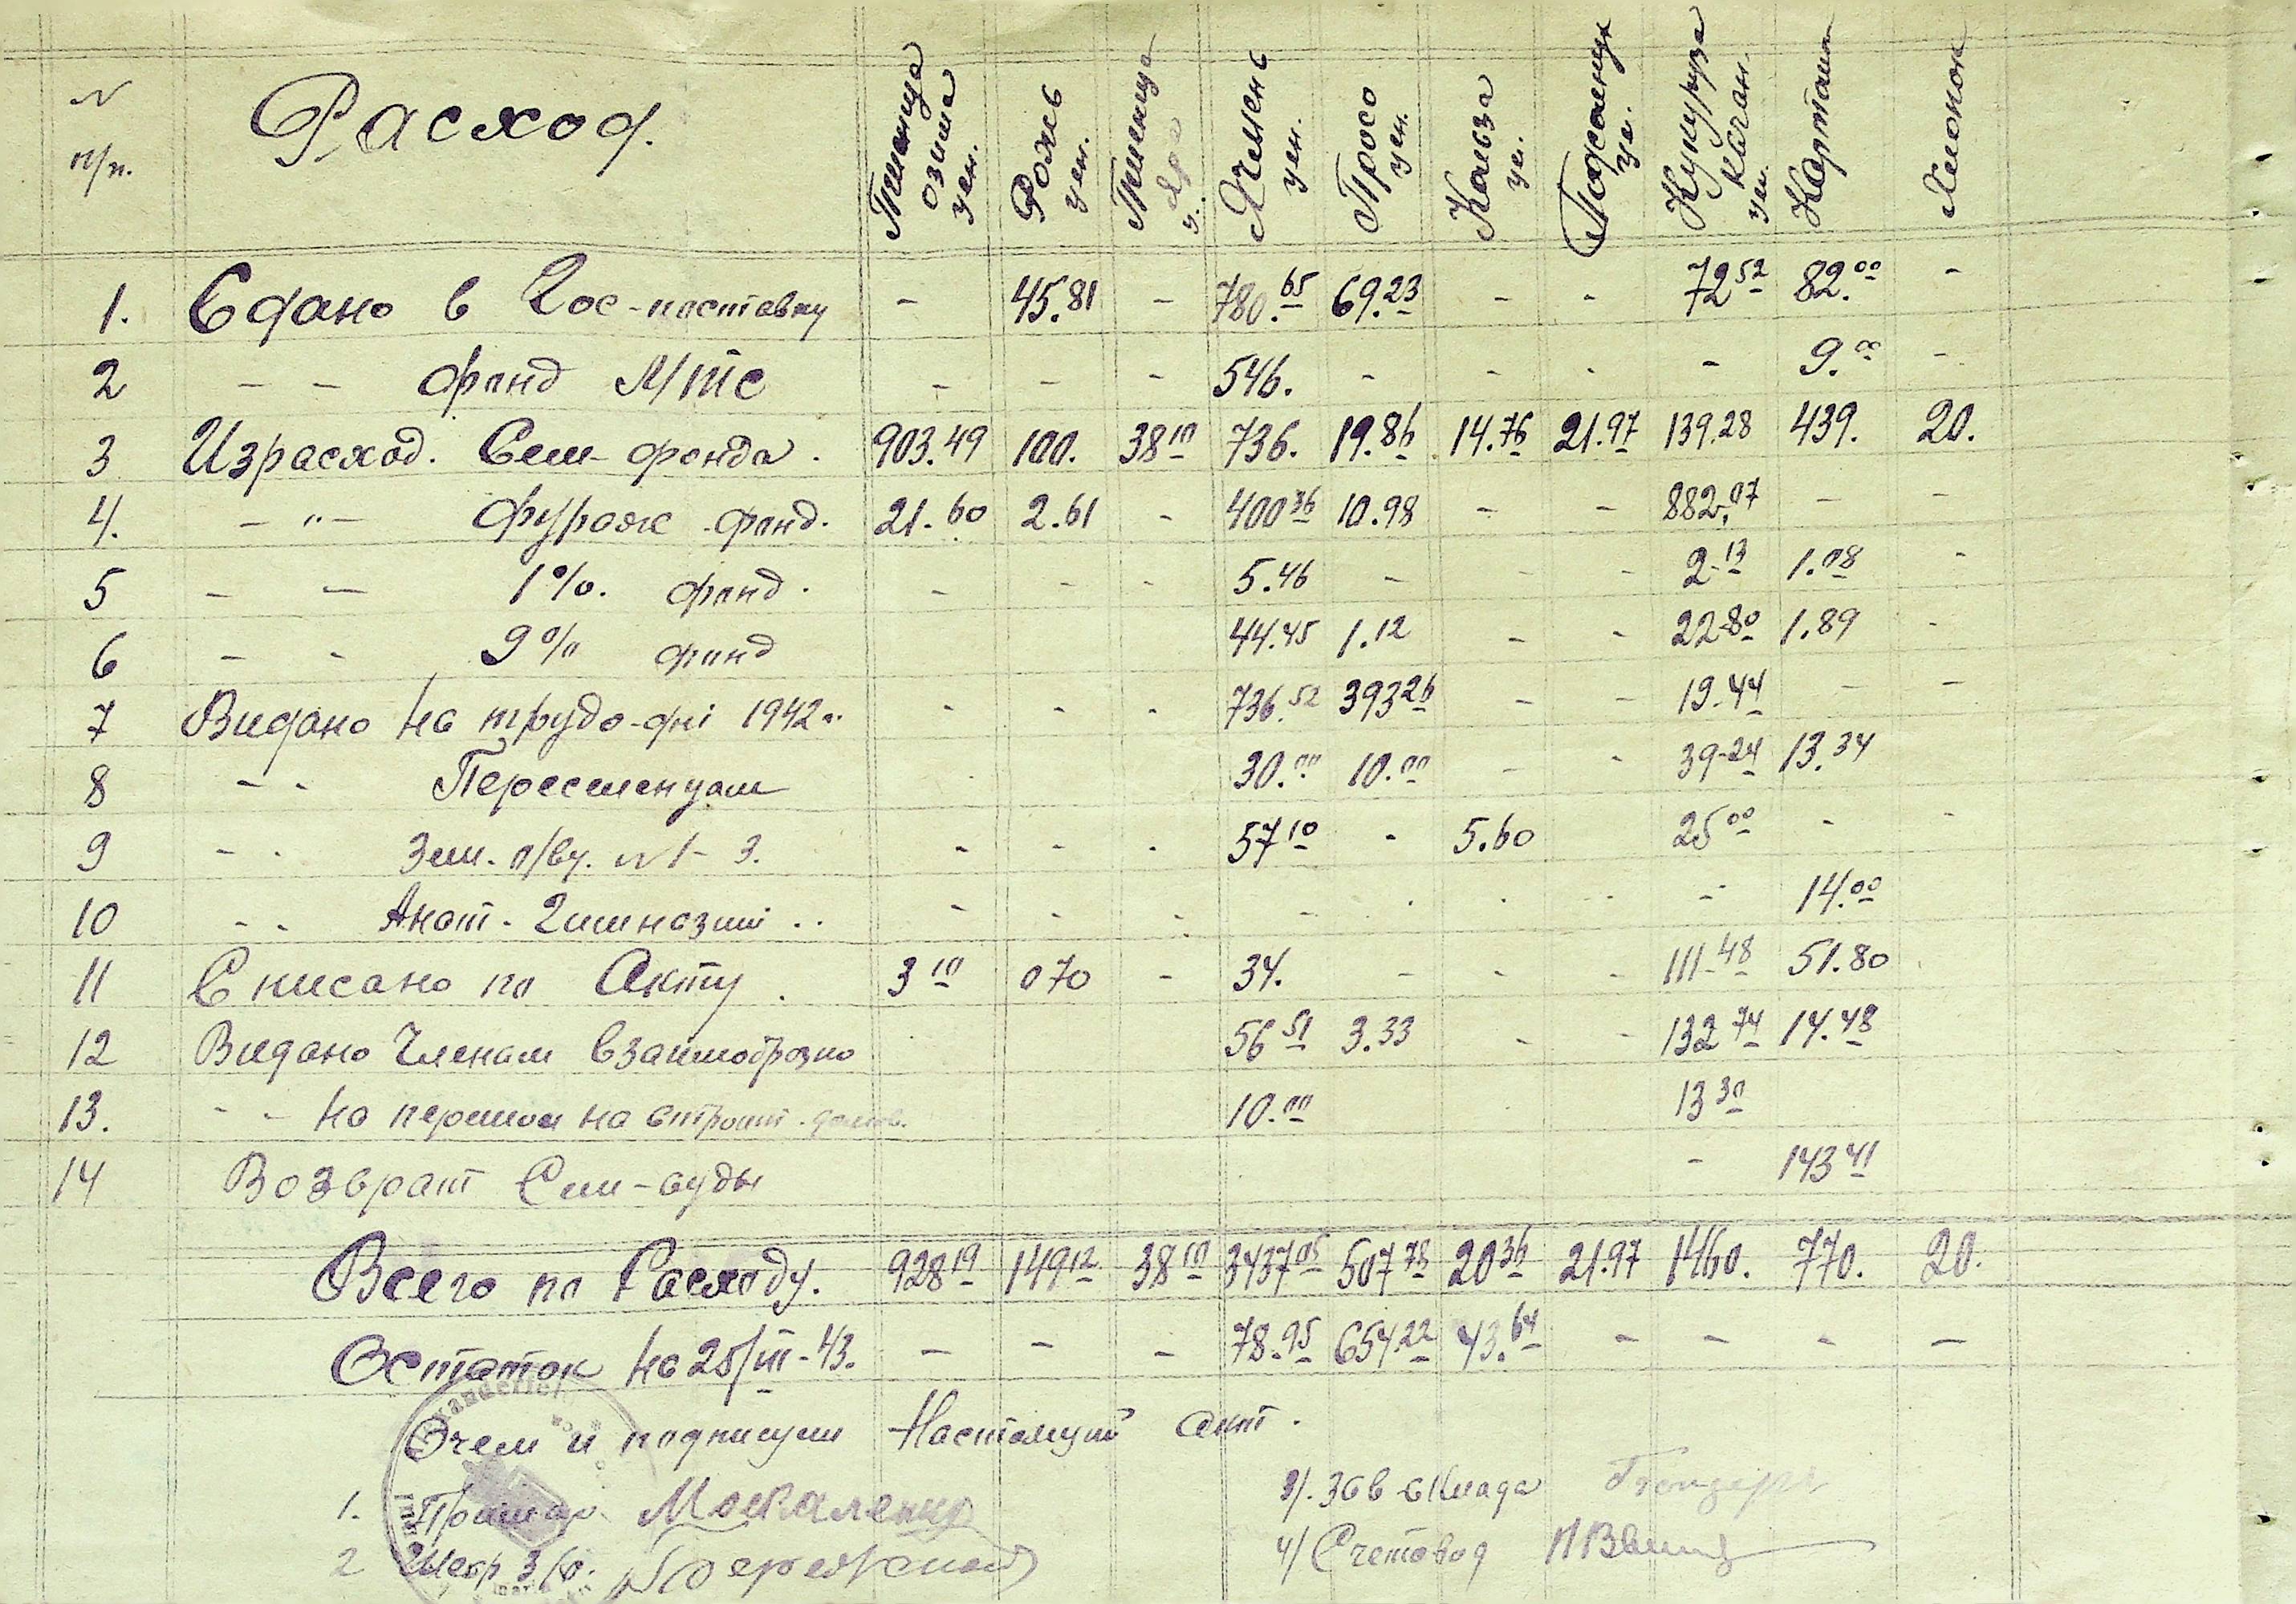 N п/п. Расход. Пшеница озима цен. Рожь цен. Пшеница Яра ц. Ячмень цен. Просо цен. Кольза це. Подсолнух це. Кукуруза качан. цен. Картошка Хлопок
1. Сдано в Гос-поставку - 45.81 - 780.65 69.23 - - 72 52 82.00 -
2 - - фонд МТС - - - 546. - - - - 9.00 -
3 Израсход. Сем-фонда. 903.49 100. 38 10 736. 19.86 14.76 21.97 139.28 439. 20.
4. - " - фураж-фонд. 21.60 2.61 - 400 36 10.98 - - 882.07 - -
5 - - 1%. фонд. - - - 5.46 - - - 2-13 1.08 -
6 - - 9% фонд - - 44.45 1.12 - - 22-80 1.89 -
7 Видано на трудо-дні 1942 г. - - - 736.52 393 26 - - 19-44 - -
8 - - Пересменцам 30.00 10.00 - - 39-24 13.34
9 - - Зем. п/ву. N 1-3. - - - 57 10 - 5.60 25 00 - -
10 - - Анат. Гимназии .. - - - - - 14.00
11 Списано по Акту. 3 10 0 70 - 34. - - - 111-48 51.80
12 Видано Членам взаимобразно 56 51 3.33 - - 132 74 14.48
13. - - на на строит. 10.00 13 30
14 Возврат Сем-суды - 143 41
Всего по Расходу. 928 19 149 12 38 10 3437 05 507 78 20 36 21.97 1460. 770. 20.
Остаток на 25/III-43. - - - 78.95 654.22 43.64 - - - -
О чем и подписуем Настоящий акт.
1. Москаленко 3/. Зав склада
2 Бережной 4/ Счетовод